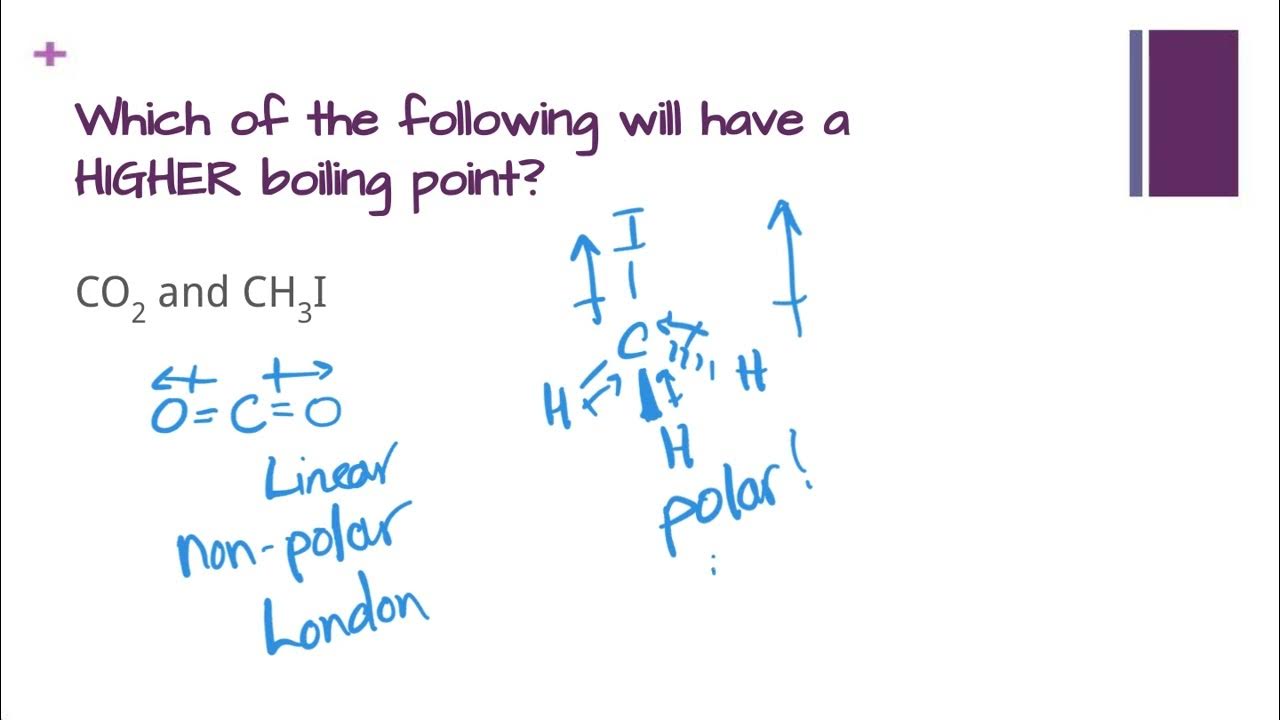 Which of the following will have a
HIGHER boiling point?
CO₂ and CH₃I
O=C=O
Linear
non-polar
London
I
C
H
H
H
polar!